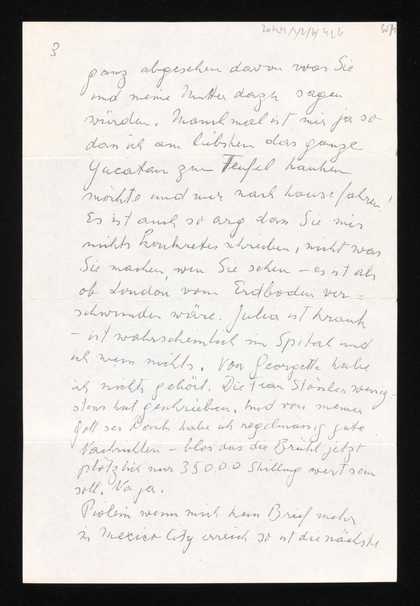 3
ganz abgesehen davon was Sie
und meine Mutter dazu sagen
würden. Manchmal ist mir ja so
dass ich am liebsten das ganze
Yucatan zum Teufel hauen
möchte und nur nach hause fahren!
Es ist auch so arg dass Sie mir
nichts konkretes schreiben, nicht was
Sie machen, wen Sie sehen – es ist als
ob London vom Erdboden ver-
schwunden wäre. Julia ist krank
– ist wahrscheinlich im Spital und
ich weiss nichts. Von Georgette habe
ich nichts gehört. Die Frau wenig-
stens hat geschrieben. Und von meiner
Gott sei Dank habe ich regelmässig gute
Nachrichten – blos dass die Brühl jetzt
plötzlich nur 35000 Shilling wert sein
soll. Na ja.
wenn mich kein Brief mehr
in Mexico City erreicht so ist die nächste